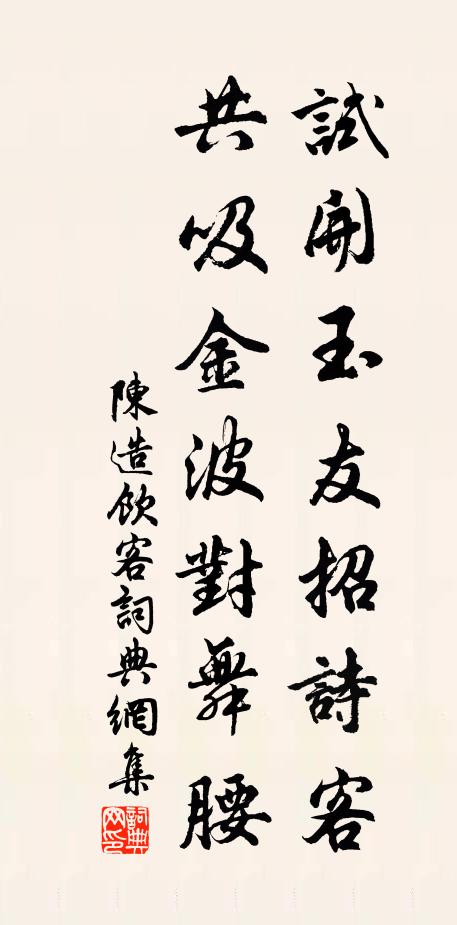 試開玉友招詩客
共吸金波對舞腰
陳造飲客詞典網集
詞典网印